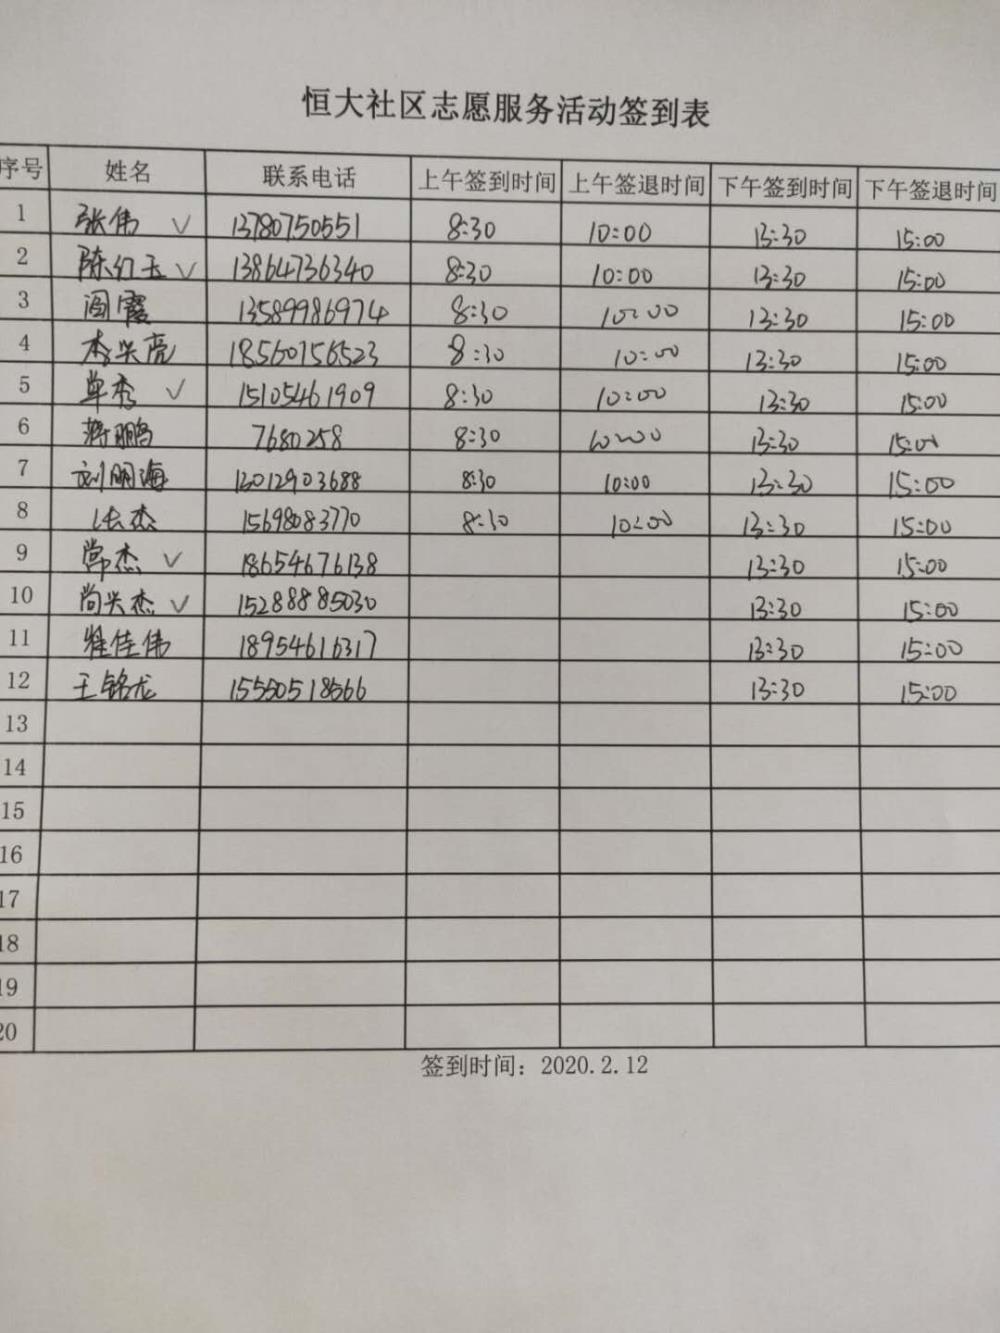 恒大社区志愿服务活动签到表
序号 姓名 联系电话 上午签到时间 上午签退时间 下午签到时间 下午签退时间
1 张伟 ✓ 13780750551 8:30 10:00 13:30 15:00
2 陈红玉 ✓ 13864736340 8:30 10:00 13:30 15:00
3 阎霞 13589986974 8:30 10:00 13:30 15:00
4 李兴亮 18560156523 8:30 10:00 13:30 15:00
5 单秀 ✓ 15105461909 8:30 10:00 13:30 15:00
6 蒋鹏 7680258 8:30 10:00 13:30 15:00
7 刘明海 13012903688 8:30 10:00 13:30 15:00
8 张杰 15698083770 8:30 10:00 13:30 15:00
9 常杰 ✓ 18654676138 13:30 15:00
10 尚兴杰 ✓ 15288885030 13:30 15:00
11 佳伟 18954616317 13:30 15:00
12 王铭龙 15550518566 13:30 15:00
13
14
15
16
17
18
19
20
签到时间：2020.2.12